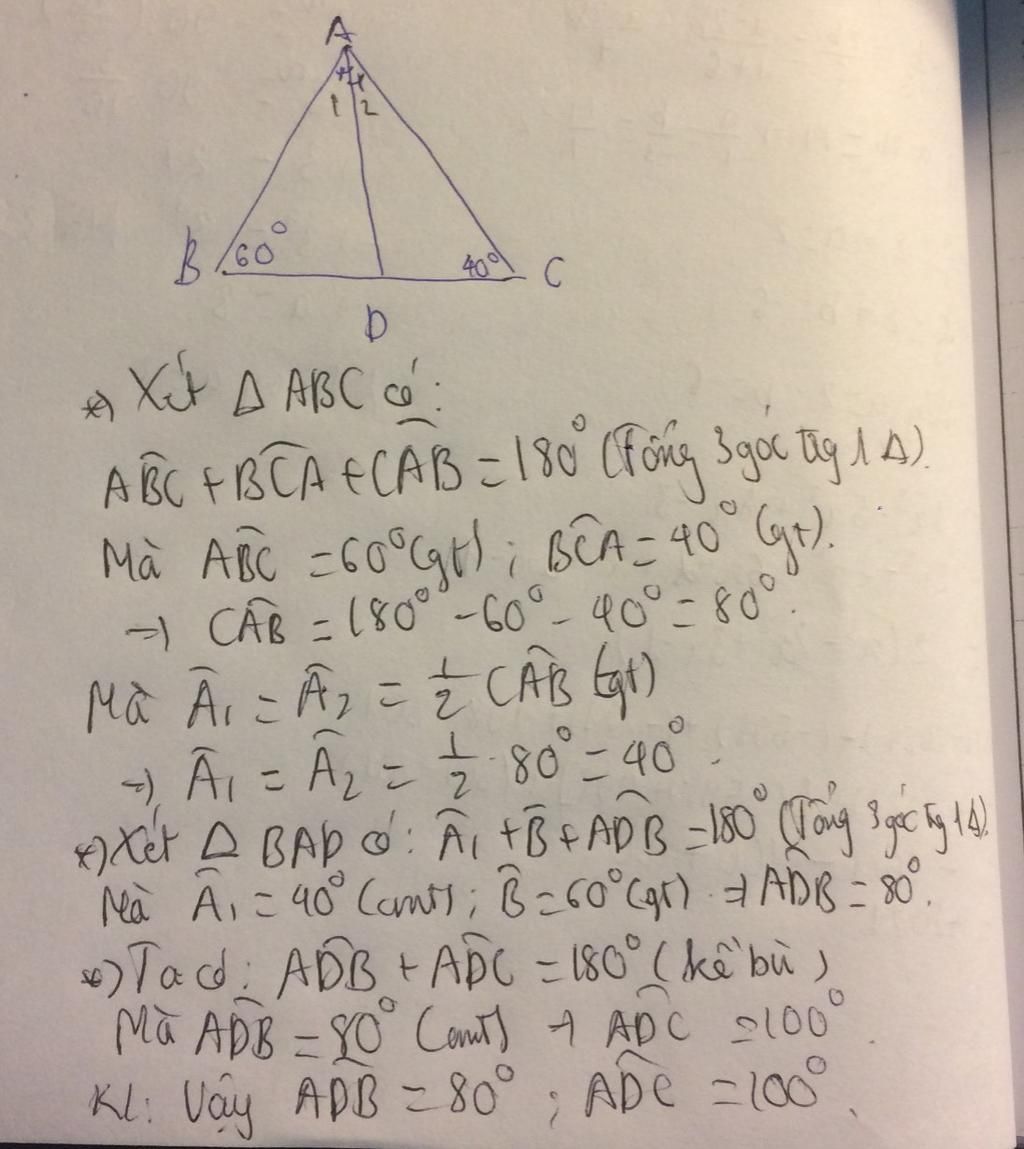 A
1 2
B 60° 40° C
D
*) Xét Δ ABC có:
ABC + BCA + CAB = 180° (Tổng 3 góc tg 1 Δ).
Mà ABC = 60° (gt) ; BCA = 40° (gt).
→ CAB = 180° - 60° - 40° = 80°.
Mà Â₁ = Â₂ = 1/2 CAB (gt)
→ Â₁ = Â₂ = 1/2 · 80° = 40°.
*) Xét Δ BAD có: Â₁ + B̂ + ADB = 180° (Tổng 3 góc tg 1 Δ).
Mà Â₁ = 40° (cmt) ; B̂ = 60° (gt) → ADB = 80°.
*) Ta có: ADB + ADC = 180° (kề bù)
Mà ADB = 80° (cmt) → ADC = 100°.
KL: Vậy ADB = 80° ; ADC = 100°.